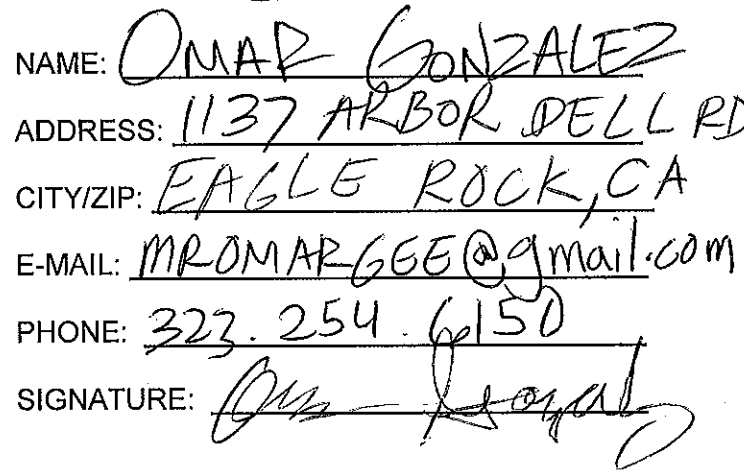 NAME: OMAR GONZALEZ
ADDRESS: 1137 ARBOR DELL RD
CITY/ZIP: EAGLE ROCK, CA
E-MAIL: MROMARGEE@gmail.com
PHONE: 323.254.6150
SIGNATURE: